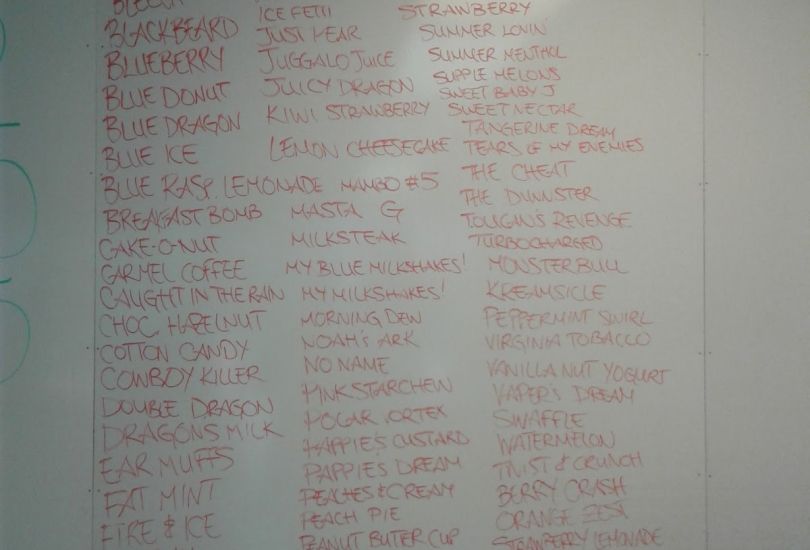 BLACKBEARD
BLUEBERRY
BLUE DONUT
BLUE DRAGON
BLUE ICE
BLUE RASP. LEMONADE
BREAKFAST BOMB
CAKE-O-NUT
CARMEL COFFEE
CAUGHT IN THE RAIN
CHOC. HAZELNUT
COTTON CANDY
COWBOY KILLER
DOUBLE DRAGON
DRAGONS MILK
EAR MUFFS
FAT MINT
FIRE & ICE
ICE FETTI
JUST PEAR
JUGGALO JUICE
JUICY DRAGON
KIWI STRAWBERRY
LEMON CHEESECAKE
MAMBO #5
MASTA G
MILKSTEAK
MY BLUE MILKSHAKES!
MY MILKSHAKES!
MORNING DEW
NOAH'S ARK
NO NAME
PINK STARCHEIN
POLAR VORTEX
PAPPIE'S CUSTARD
PAPPIES DREAM
PEACHES & CREAM
PEACH PIE
PEANUT BUTER CUP
STRAWBERRY
SUMMER LOVIN'
SUMMER MENTHOL
SUPPLE MELONS
SWEET BABY J
SWEET NECTAR
TANGERINE DREAM
TEARS OF MY ENEMIES
THE CHEAT
THE DUNNSTER
REVENGE
TURBOCHARGED
MONSTERBULL
KREAMSICLE
PEPPERMINT SWIRL
VIRGINIA TOBACCO
VANILLA NUT YOGURT
VAPER'S DREAM
SWAFFLE
WATERMELON
TWIST & CRUNCH
BERRY CRASH
ORANGE ZEST
STRAWBERRY LEMONADE